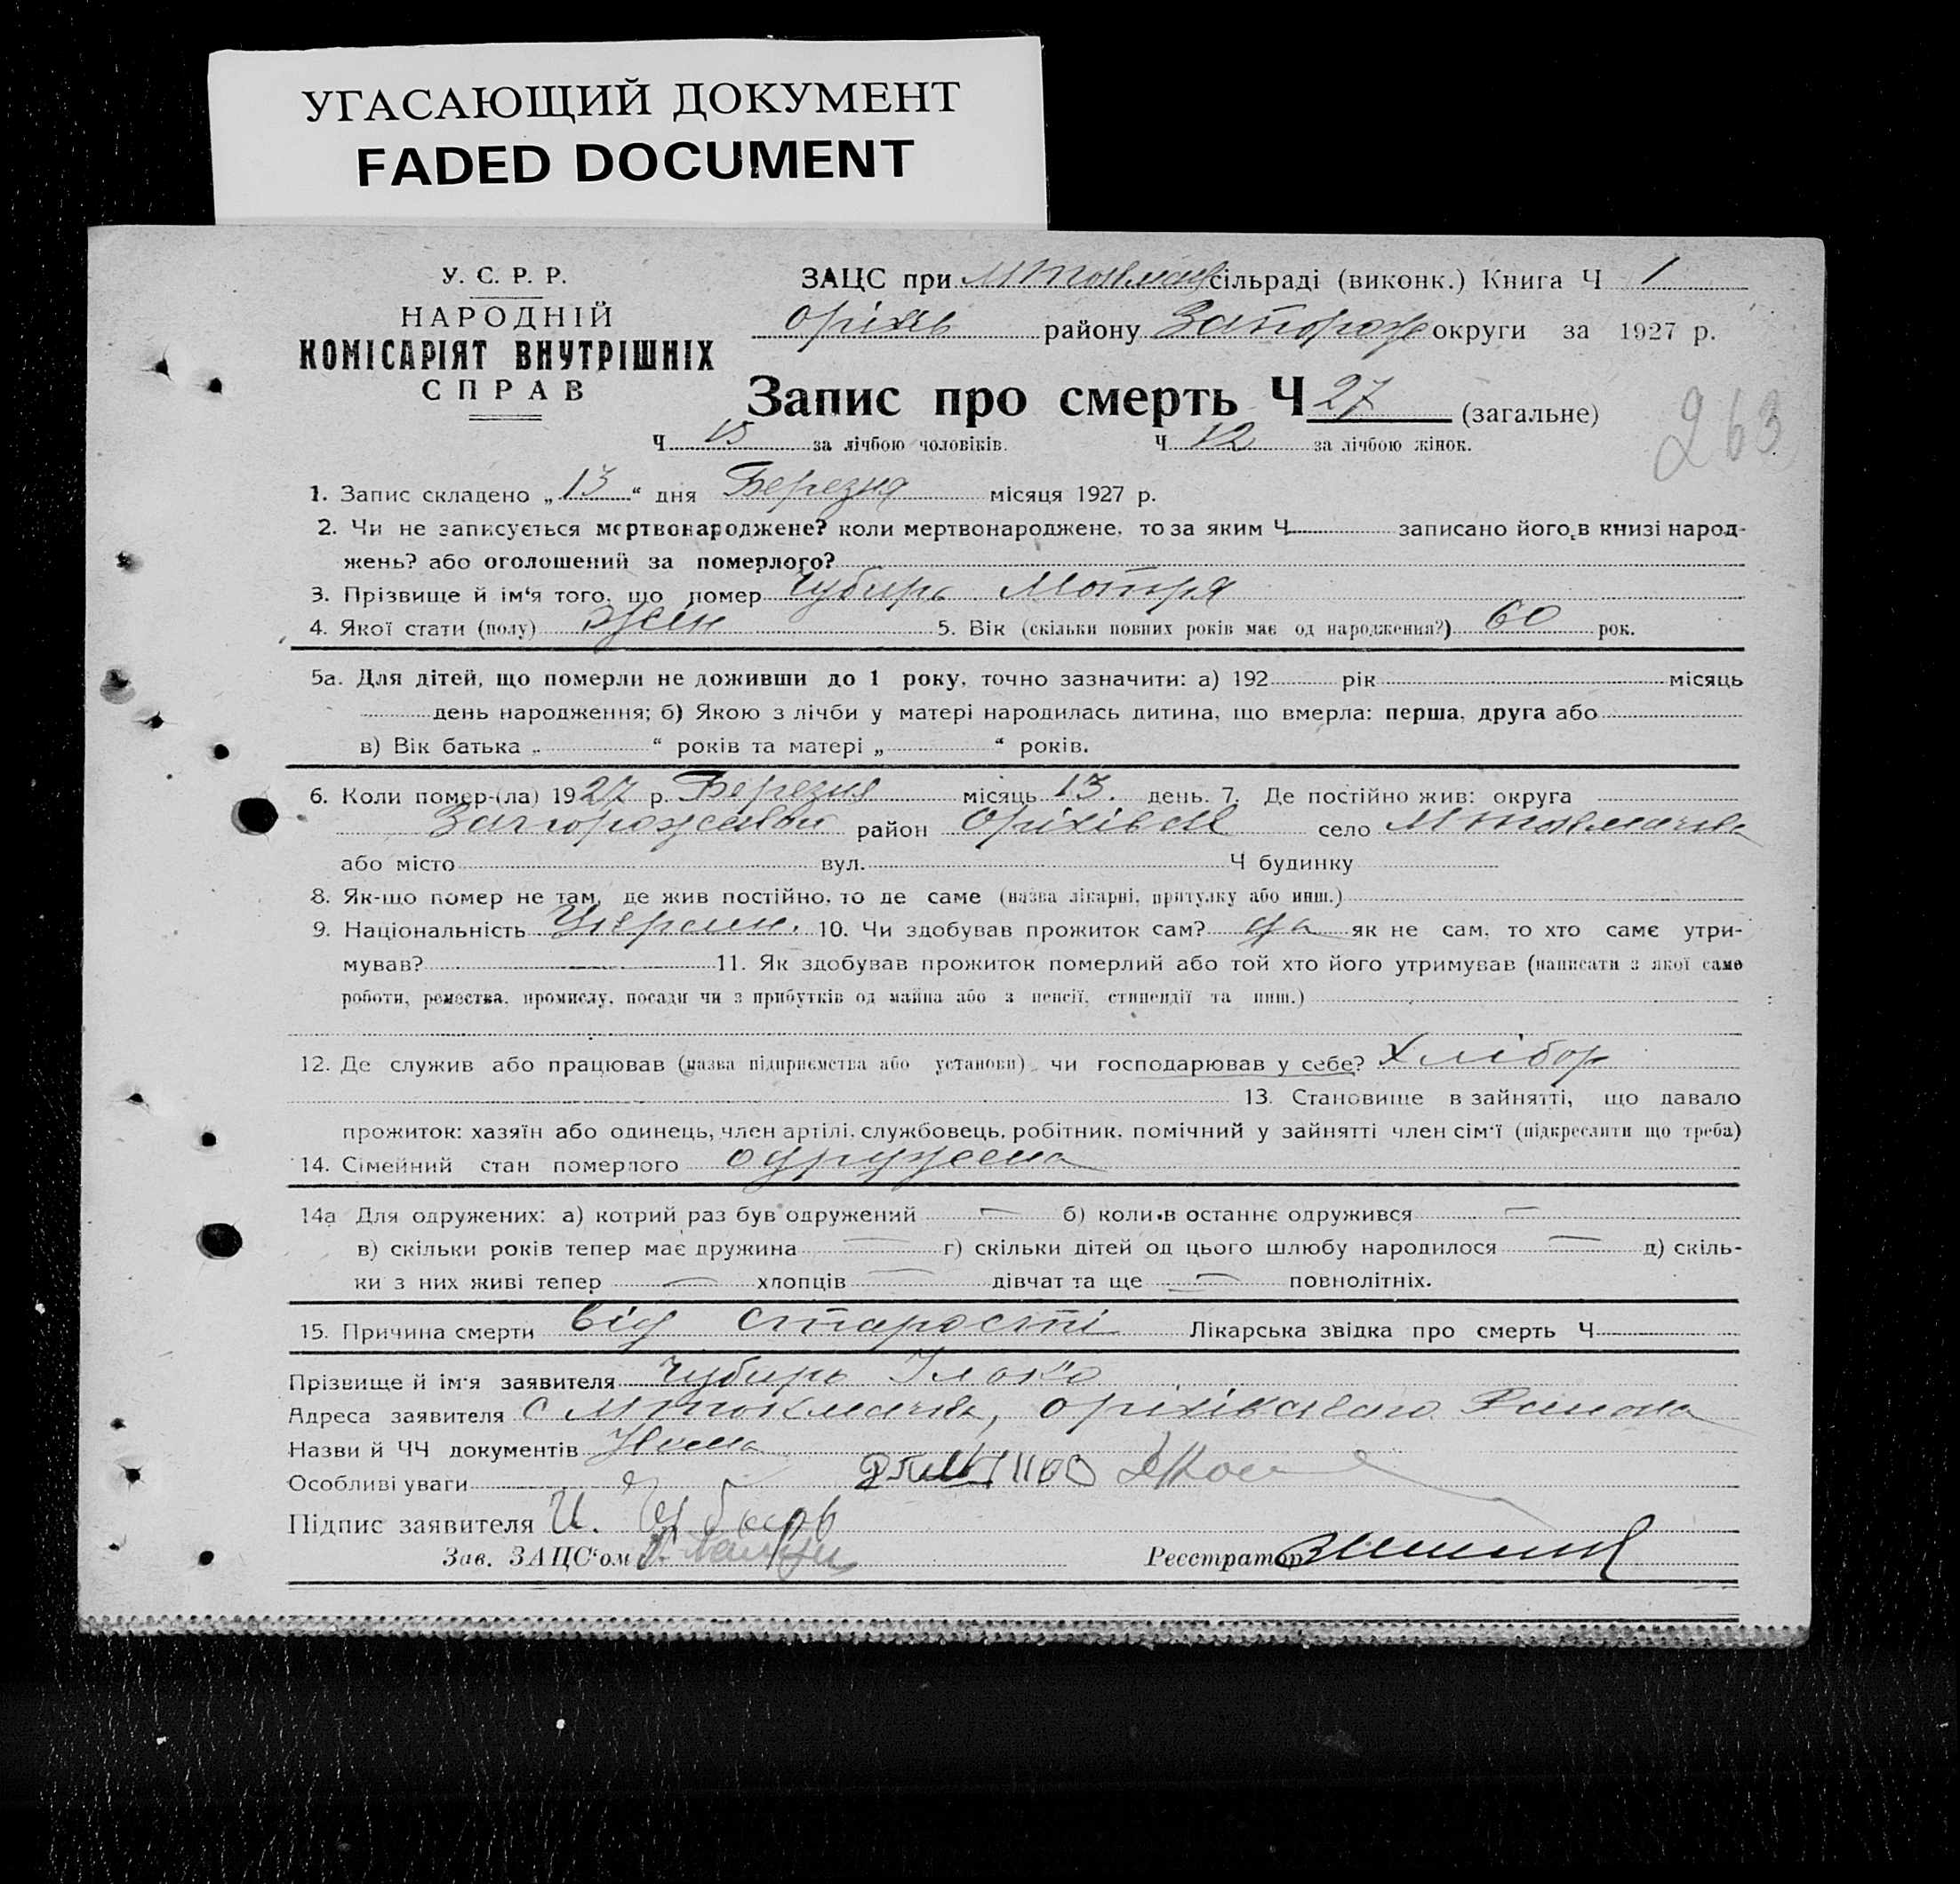 УГАСАЮЩИЙ ДОКУМЕНТ
FADED DOCUMENT
У. С. Р. Р.
НАРОДНІЙ
КОМІСАРІЯТ ВНУТРІШНІХ
СПРАВ
ЗАЦС при М Токмач сільраді (виконк.) Книга Ч 1
Оріхів району Запорож округи за 1927 р.
Запис про смерть Ч 27 (загальне)
263
Ч 15 за лічбою чоловіків. Ч 12 за лічбою жінок.
1. Запис складено „13“ дня Березня місяця 1927 р.
2. Чи не записується мертвонароджене? коли мертвонароджене, то за яким Ч записано його в книзі народ-
жень? або оголошений за померлого?
3. Прізвище й ім‘я того, що помер Чубирь Мотря
4. Якої стати (полу) жін 5. Вік (скільки повних років має од народження?) 60 рок.
5а. Для дітей, що померли не доживши до 1 року, точно зазначити: а) 192 рік місяць
день народження; б) Якою з лічби у матері народилась дитина, що вмерла: перша, друга або
в) Вік батька „ “ років та матері „ “ років.
6. Коли помер-(ла) 1927 р. Березня місяць 13. день. 7. Де постійно жив: округа
район село М
або місто вул. Ч будинку
8. Як-що помер не там, де жив постійно, то де саме (назва лікарні, притулку або инш.)
9. Національність Україн. 10. Чи здобував прожиток сам? да як не сам, то хто саме утри-
мував? 11. Як здобував прожиток померлий або той хто його утримував (написати з якої саме
роботи, ремества, промислу, посади чи з прибутків од майна або з пенсії, стипендії та инш.)
12. Де служив або працював (назва підприємства або установи) чи господарював у себе? Хлібор
13. Становище в зайнятті, що давало
прожиток: хазяїн або одинець, член артілі, службовець, робітник, помічний у зайнятті член сім‘ї (підкреслити що треба)
14. Сімейний стан померлого одружена
14а Для одружених: а) котрий раз був одружений — б) коли в останнє одружився —
в) скільки років тепер має дружина — г) скільки дітей од цього шлюбу народилося — д) скіль-
ки з них живі тепер — хлопців — дівчат та ще — повнолітніх.
15. Причина смерти від старости Лікарська звідка про смерть Ч
Прізвище й ім‘я заявителя Чубирь Ілько
Адреса заявителя с М Района
Назви й ЧЧ документів Нима
Особливі уваги
Підпис заявителя И.
Зав. ЗАЦС‘ом
Реєстратор